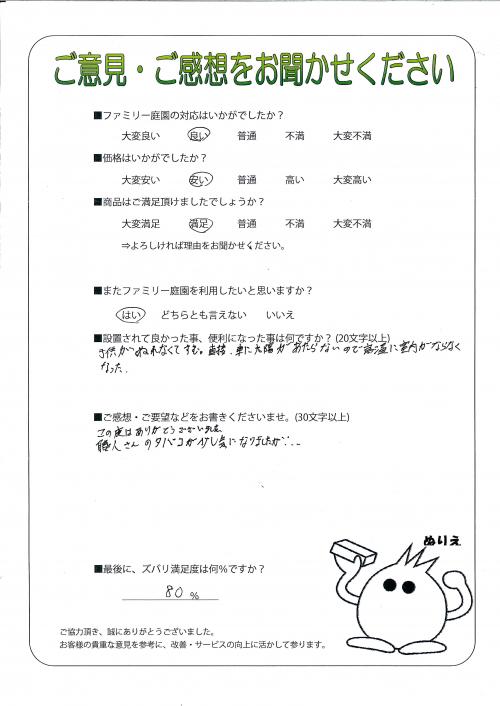 ご意見・ご感想をお聞かせください
■ファミリー庭園の対応はいかがでしたか？
大変良い 良い 普通 不満 大変不満
■価格はいかがでしたか？
大変安い 安い 普通 高い 大変高い
■商品はご満足頂けましたでしょうか？
大変満足 満足 普通 不満 大変不満
⇒よろしければ理由をお聞かせください。
■またファミリー庭園を利用したいと思いますか？
はい どちらとも言えない いいえ
■設置されて良かった事、便利になった事は何ですか？(20文字以上)
子供がぬれなくてすむ。直接、車に太陽があたらないので高温に室内がならなく
なった。
■ご感想・ご要望などをお書きくださいませ。(30文字以上)
この度はありがとうございました
職人さんのタバコが少し気になりましたが…
ぬりえ
■最後に、ズバリ満足度は何％ですか？
80 ％
ご協力頂き、誠にありがとうございました。
お客様の貴重な意見を参考に、改善・サービスの向上に活かして参ります。